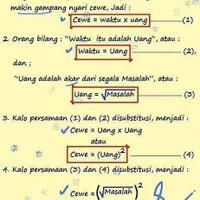 makin gampang nyari cewe, Jadi :
Cewe = waktu x uang (1)
2. Orang bilang : "Waktu itu adalah Uang", atau :
Waktu = Uang (2)
dan ;
"Uang adalah akar dari segala Masalah", atau :
Uang = √Masalah (3)
3. Kalo persamaan (1) dan (2) disubstitusi, menjadi :
Cewe = Uang x Uang
atau
Cewe = (Uang)² (4)
4. Kalo persamaan (3) dan (4) disubstitusi, menjadi :
Cewe = (√Masalah)²